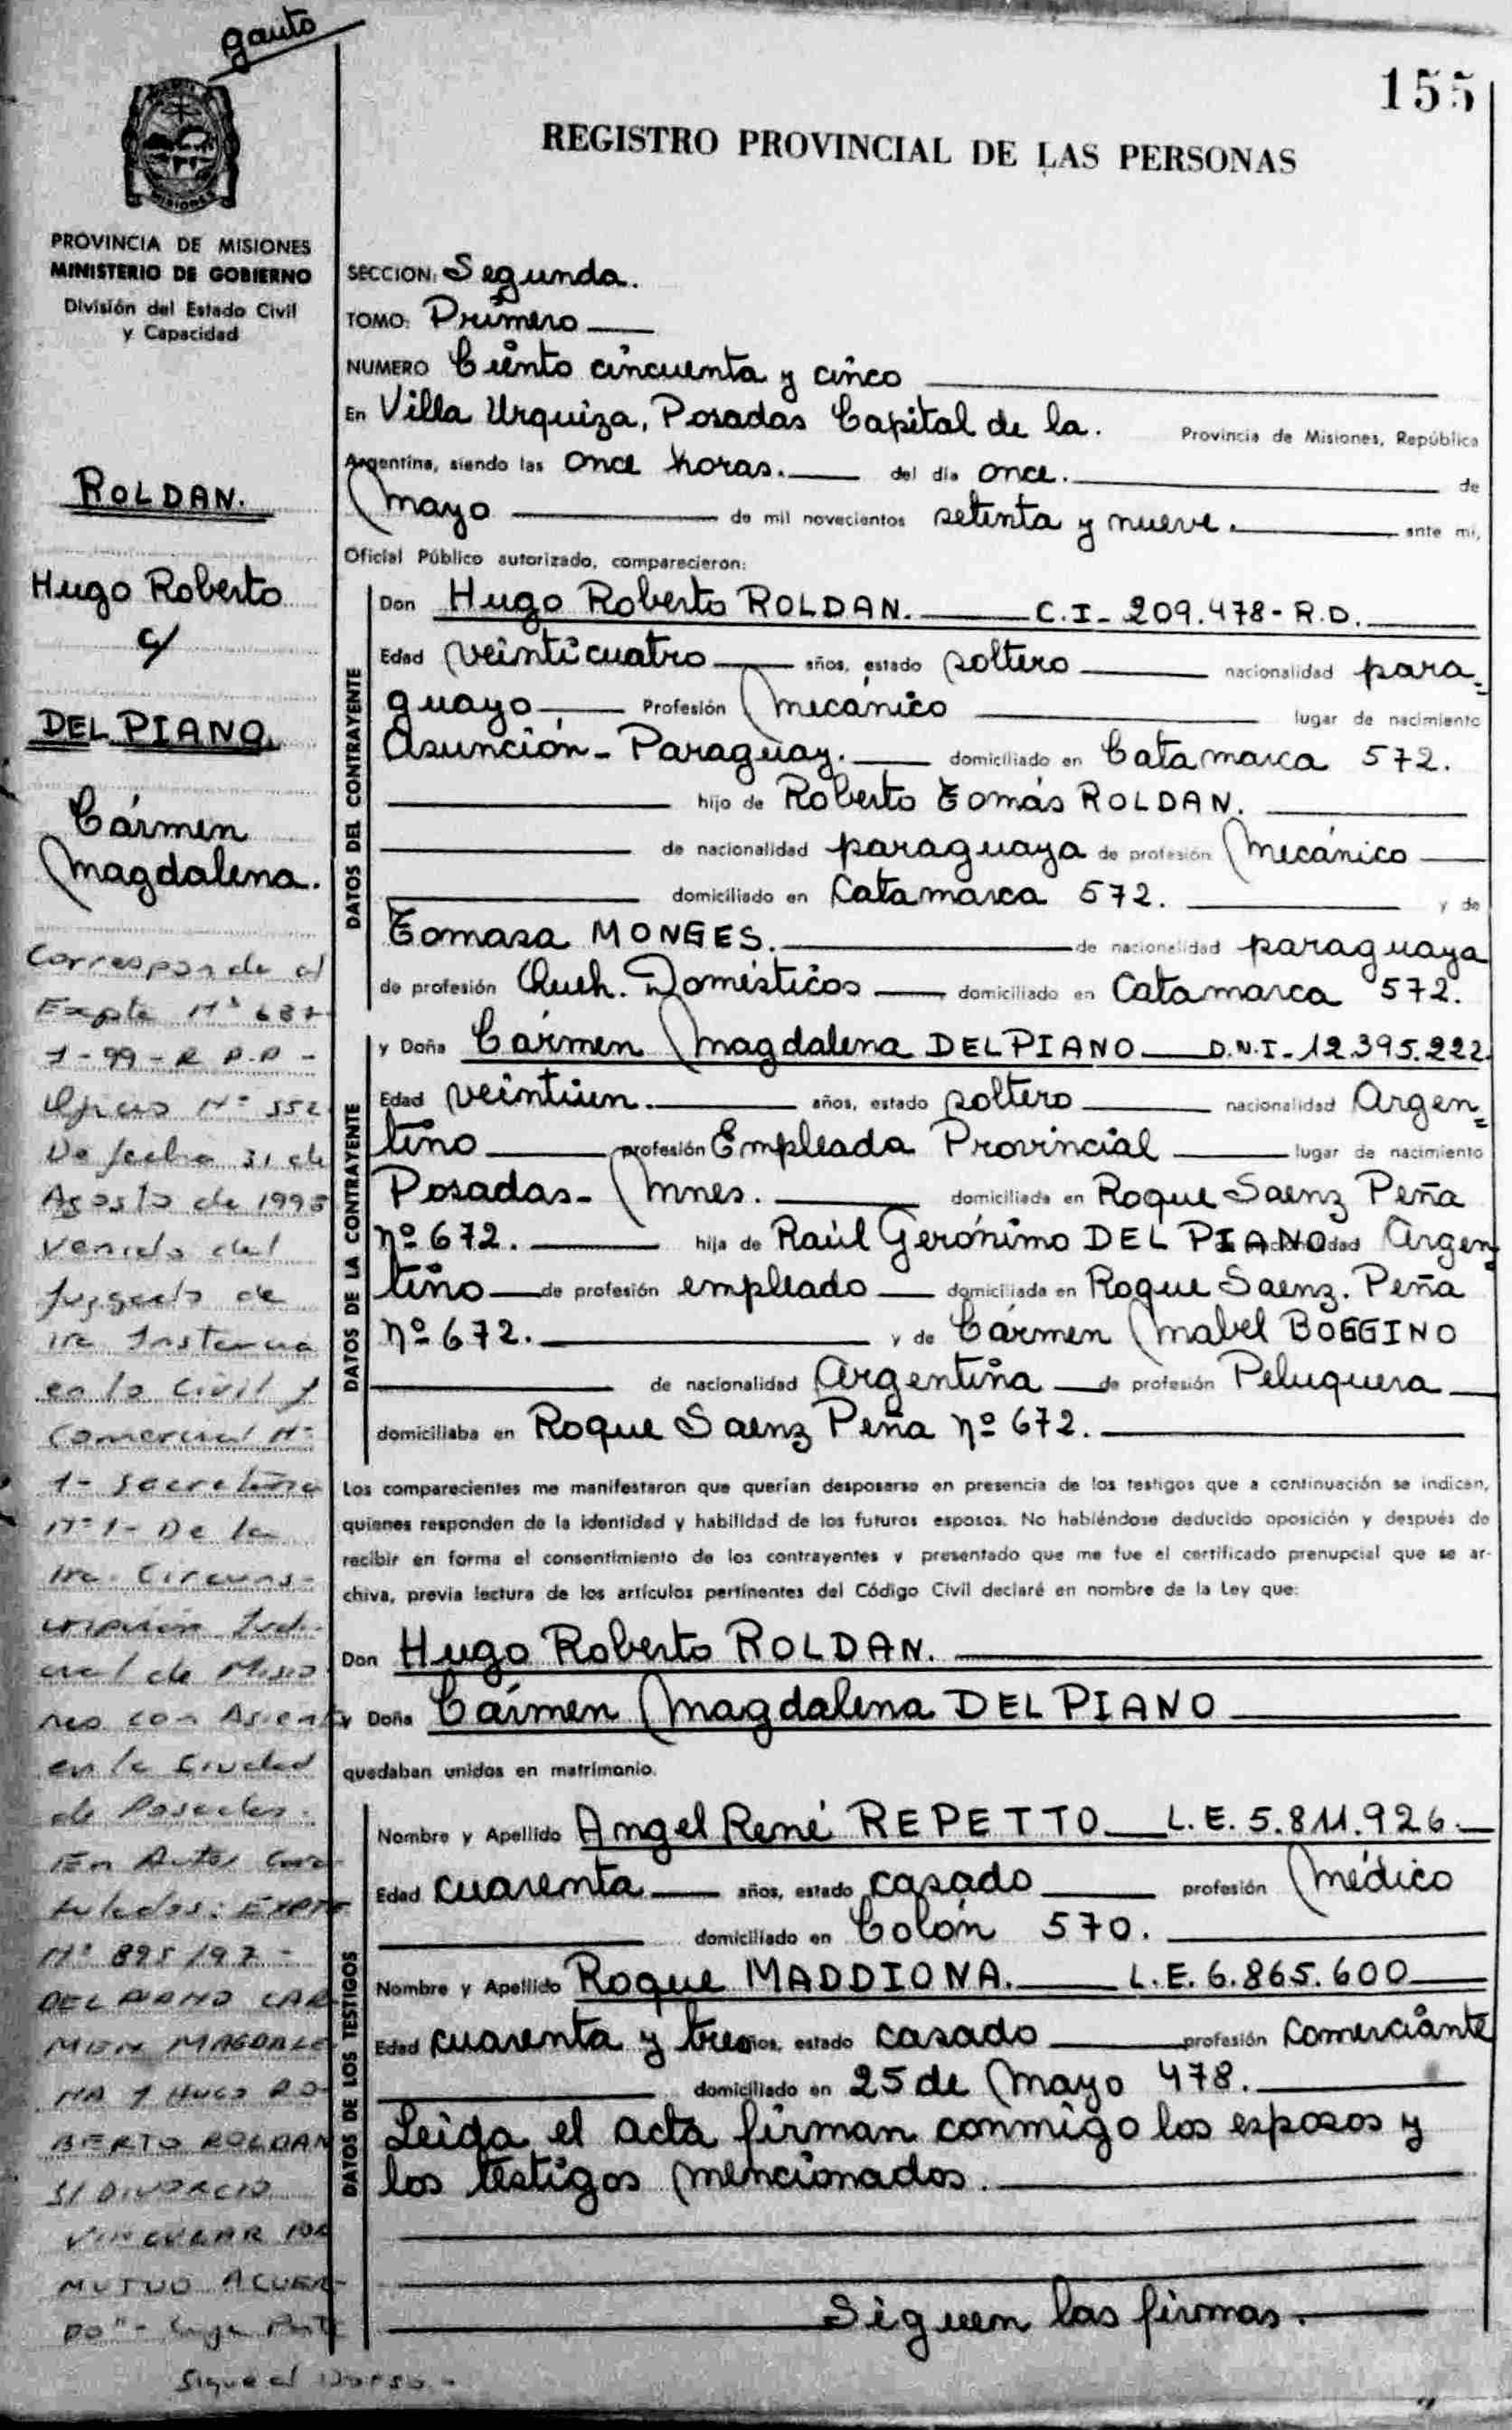 gauto
155
REGISTRO PROVINCIAL DE LAS PERSONAS
MISIONES
PROVINCIA DE MISIONES
MINISTERIO DE GOBIERNO
División del Estado Civil
y Capacidad
ROLDAN.
Hugo Roberto
c/
DEL PIANO.
Cármen
Magdalena.
Corresponde al
Expte Nº 687
1-99-R P.P -
Oficio Nº 552
De fecha 31 de
Agosto de 1998
Venido del
Juzgado de
1ra Instancia
en lo Civil y
Comercial Nº
1- Secretaria
Nº 1- De la
1ra. Circuns-
cripción Judi-
cial de Misio
nes con Asiento
en la Ciudad
de Posadas.
En Autos Cara
tulados: EXPTE
Nº 895/97 -
DEL PIANO CAR
MEN MAGDALE
NA Y HUGO RO-
BERTO ROLDAN
S/ DIVORCIO
VINCULAR POR
MUTUO ACUER-
DO"-
Sigue al Dorso -
SECCION: Segunda.
TOMO: Primero
NUMERO Ciento cincuenta y cinco
En Villa Urquiza, Posadas Capital de la. Provincia de Misiones, República
Argentina, siendo las once horas. del día once. de
Mayo de mil novecientos setenta y nueve. ante mi,
Oficial Público autorizado, comparecieron:
DATOS DEL CONTRAYENTE
Don Hugo Roberto ROLDAN. C.I- 209.478- R.D.
Edad veinticuatro años, estado soltero nacionalidad para=
guayo Profesión Mecánico lugar de nacimiento
Asunción- Paraguay. domiciliado en Catamarca 572.
hijo de Roberto Tomás ROLDAN.
de nacionalidad paraguaya de profesión Mecánico
domiciliado en Catamarca 572. y de
Tomasa MONGES. de nacionalidad paraguaya
de profesión Queh. Domésticos domiciliado en Catamarca 572.
DATOS DE LA CONTRAYENTE
y Doña Cármen Magdalena DEL PIANO D.N.I- 12.395.222
Edad veintiun. años, estado soltero nacionalidad Argen=
tino profesión Empleada Provincial lugar de nacimiento
Posadas- Mnes. domiciliada en Roque Saenz Peña
Nº 672. hija de Raúl Gerónimo DEL PIANO nacionalidad Argen
tino de profesión empleado domiciliada en Roque Saenz. Peña
Nº 672. y de Cármen Mabel BOGGINO
de nacionalidad Argentina de profesión Peluquera
domiciliaba en Roque Saenz Peña Nº 672.
Los comparecientes me manifestaron que querían desposarse en presencia de los testigos que a continuación se indican,
quienes responden de la identidad y habilidad de los futuros esposos. No habiéndose deducido oposición y después de
recibir en forma el consentimiento de los contrayentes y presentado que me fue el certificado prenupcial que se ar-
chiva, previa lectura de los artículos pertinentes del Código Civil declaré en nombre de la Ley que:
Don Hugo Roberto ROLDAN.
y Doña Cármen Magdalena DEL PIANO
quedaban unidos en matrimonio.
DATOS DE LOS TESTIGOS
Nombre y Apellido Angel René REPETTO L.E. 5.811.926.
Edad cuarenta años, estado casado profesión Médico
domiciliado en Colón 570.
Nombre y Apellido Roque MADDIONA. L.E. 6.865.600
Edad cuarenta y tres años, estado casado profesión Comerciante
domiciliado en 25 de Mayo 478.
Leida el acta firman conmigo los esposos y
los testigos mencionados.
Siguen las firmas.